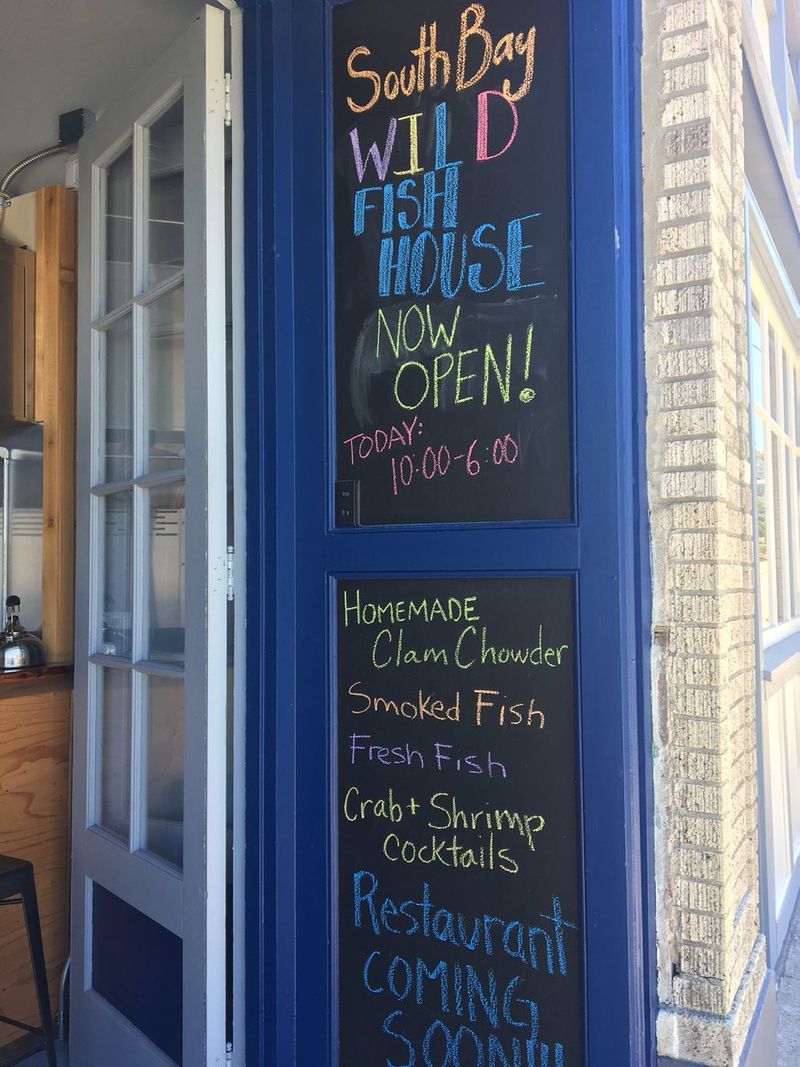 South Bay
WILD
FISH
HOUSE
NOW
OPEN!
TODAY:
10:00-6:00
HOMEMADE
Clam Chowder
Smoked Fish
Fresh Fish
Crab + Shrimp
Cocktails
Restaurant
COMING
SOON!!